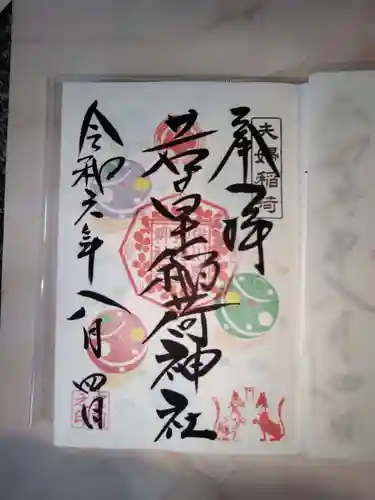 奉拝
夫婦稲荷
若里稲荷神社
令和元年八月四日